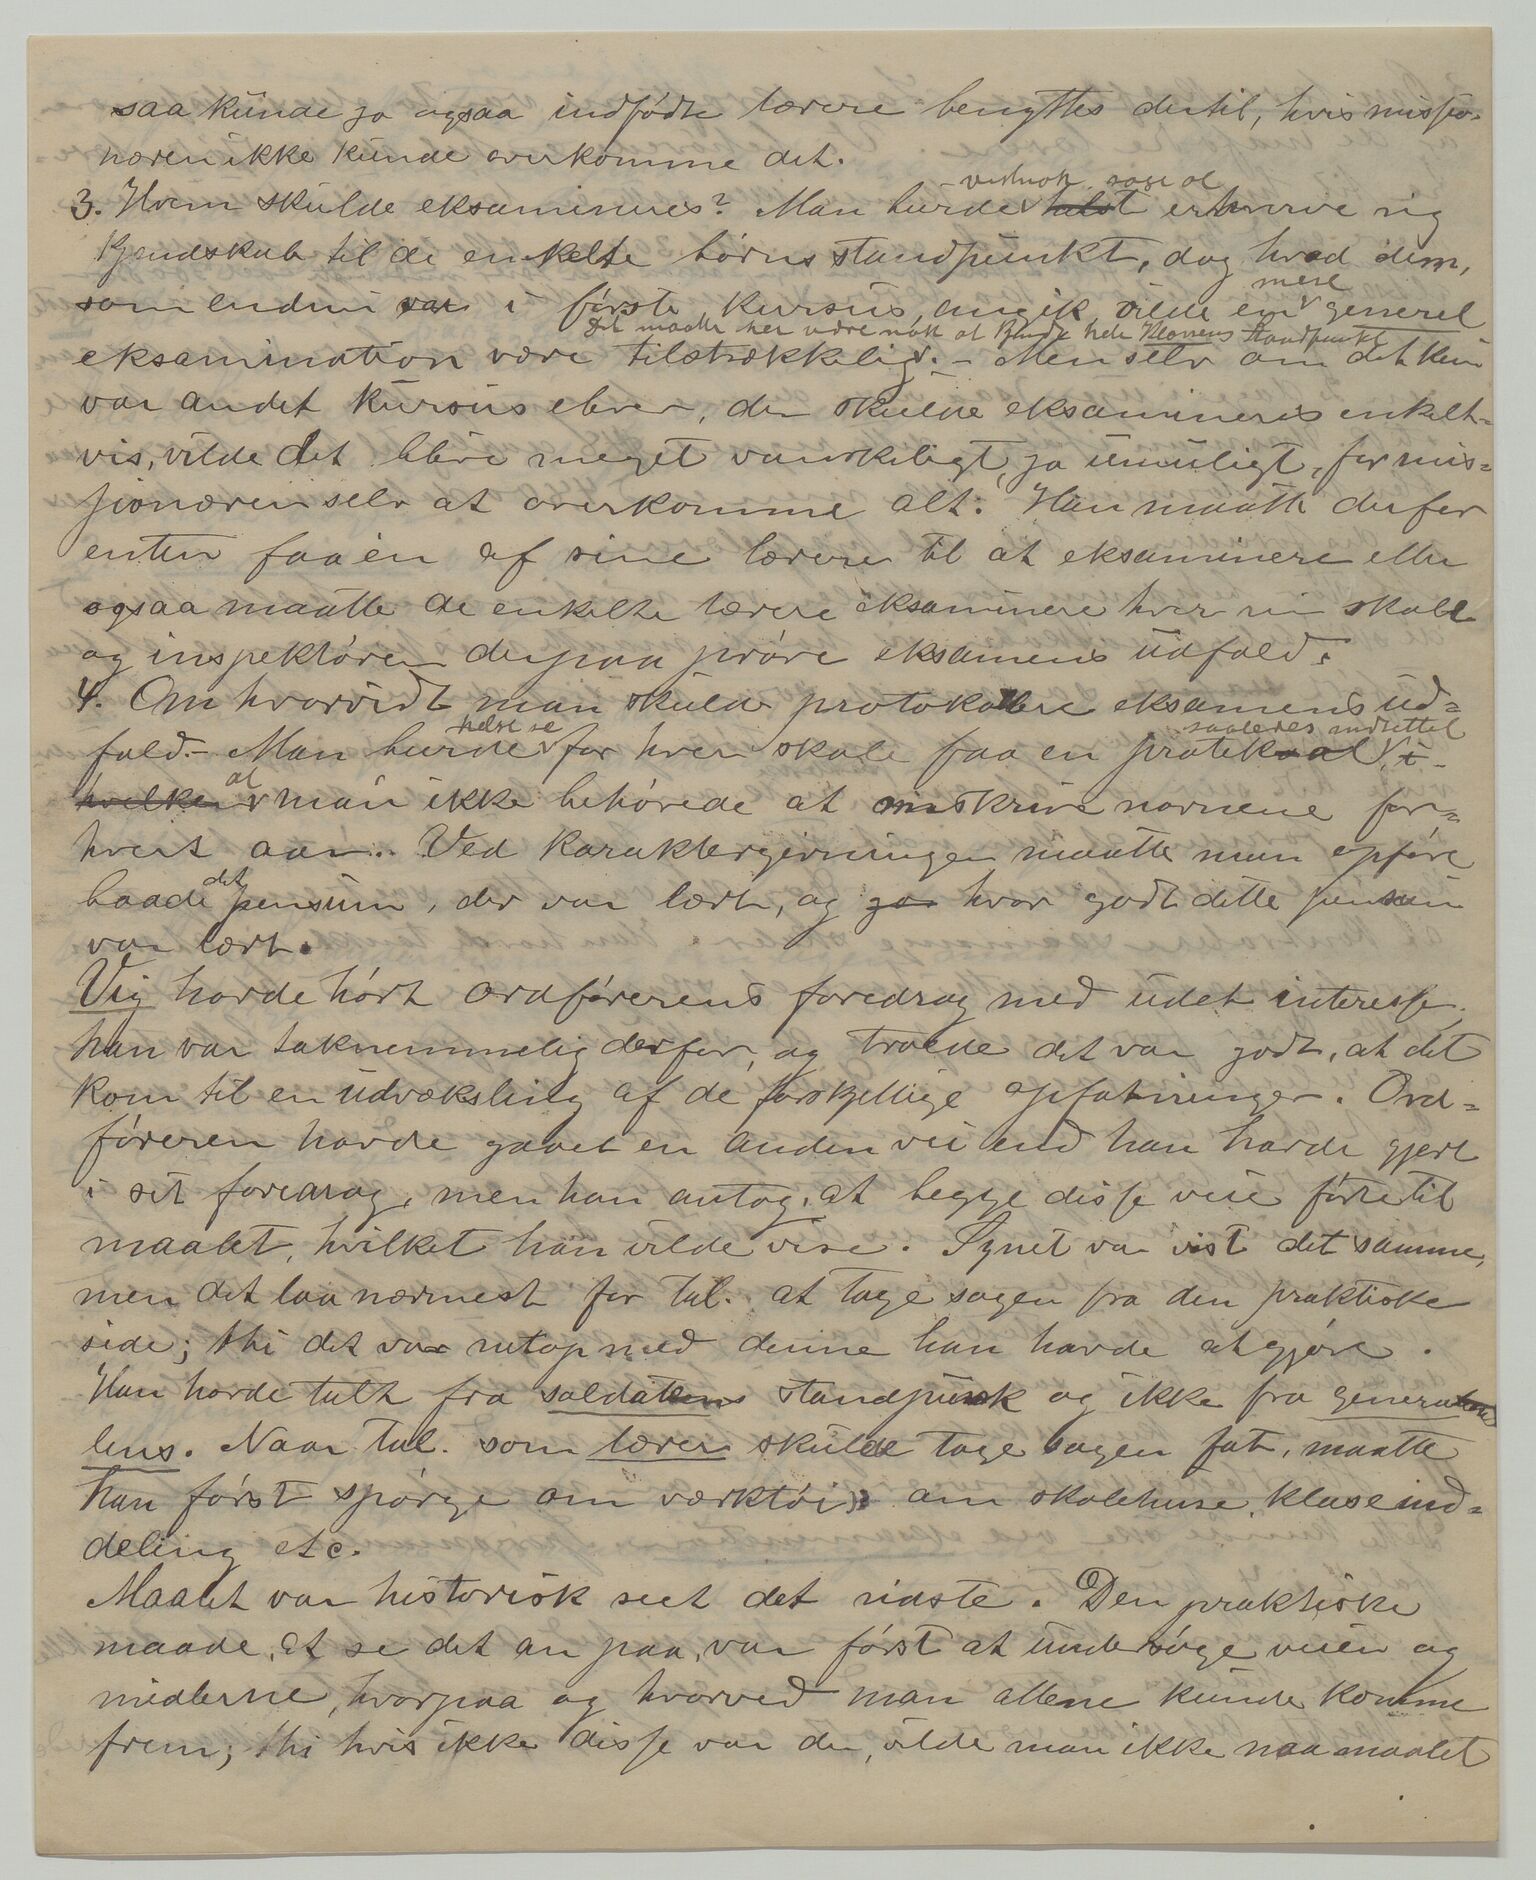 saa kunde jo ogsaa indfødte lærere benyttes dertil, hvis missio-
næren ikke kunde overkomme det.
3. Hvem skulde eksamineres? Man burde vistnok søge at helst erhverve sig
Kjendskab til de enkelte børns standpunkt, dog hvad dem,
som endnu var i første kursus, angik, vilde en mere generel
eksamination være tilstrækkelig. Det maatte her være nok at kjende hele Klassens standpunkt – Men selv om det kun
var andet kursus elever, der skulde eksamineres enkelt-
vis, vilde det blive meget vanskeligt, ja umuligt, for mis-
sionæren selv at overkomme alt. Han maatte derfor
enten faa én af sine lærere til at eksaminere eller
ogsaa maatte de enkelte lærere eksaminere hver sin skole
og inspektøren derpaa prøve eksamens udfald.
4. Om hvorvidt man skulde protokollere eksamens ud-
fald. – Man burde helst se for hver skole faa en protokoal saaledes indrettet i
hvilken at man ikke behøvede at omskrive navnene for
hvert aar. Ved Karaktergivningen maatte man opføre
baade det pensum, der var lært, og ja hvor godt dette pensum
var lært.
Vig havde hørt ordførerens foredrag med udelt interesse,
han var taknemmelig derfor, og troede det var godt, at det
kom til en udveksling af de forskjellige opfatninger. Ord-
føreren havde gaaet en anden vei end han havde gjort
i sit foredrag, men han antog, at begge disse veie førte til
maalet, hvilket han vilde vise. Synet var vist det samme,
men det laa nærmest for tal. at tage sagen fra den praktiske
side; thi det var netop med denne han havde at gjøre.
Han havde talt fra soldatens standpunk og ikke fra genera
lens. Naar tal. som lærer skulde tage sagen fat, maatte
han først spørge om værktøi; om skolehuse, klaseind-
deling etc.
Maalet var historisk seet det sidste. Den praktiske
maade, at se det an paa, var først at undersøge veien og
midlerne, hvorpaa og hvorved man allene kunde komme
frem; thi hvis ikke disse var der, vilde man ikke naa maalet